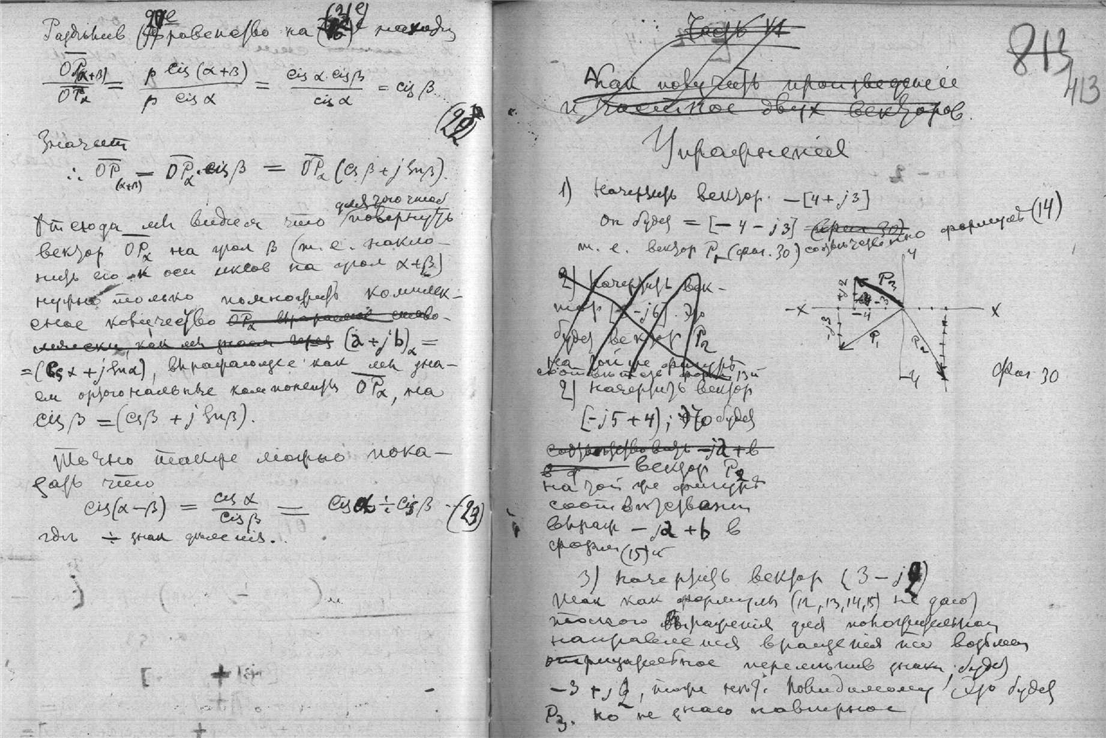 Разделив равенство на находим
OPα+β) / OPα = ρ cis (α+β) / ρ cis α = cis α · cis β / cis α = cis β
(22)
Значит
∴ OP(α+β) = OPα · cis β = OPα (cs β + j sn β).
для того чтоб
Отсюда мы видим что повернуть
вектор OPα на угол β (т.е. накло-
нить его к оси иксов на угол α+β)
нужно только помножить комплек-
сное количество
(a + jb)α =
= (cs α + j sn α), выражающее как мы зна-
ем ортогональные компоненты OPα, на
cis β = (cs β + j sn β).
Точно также можно пока-
зать что
cis (α – β) = cis α / cis β = cis α ÷ cis β — (23)
где ÷ знак деления.
Часть VI
813
413
Как получить произведение
и частное двух векторов.
Упражнения
1) Начертить вектор – [4 + j3]
Он будет = [– 4 – j3] формуле (14)
т.е. вектор P1 (фиг. 30) соответственно
2) Начертить век-
тор
будет вектор P2
на той же фигуре
2) Начертить вектор
[–j5 + 4); Это будет
вектор P2
на той же фигуре
соответствен
выраж – ja + b в
форм (15)
y
–x x
P3
P1 P2
–y
Фиг. 30
3) Начертить вектор (3 – j2)
так как формулы (12, 13, 14, 15) не дают
такого выражения для положительного
направления вращения то возьмем
отрицательное переменив знаки, будет
–3 + j2, тоже нет. Повидимому это будет
P3. но не знаю наверное